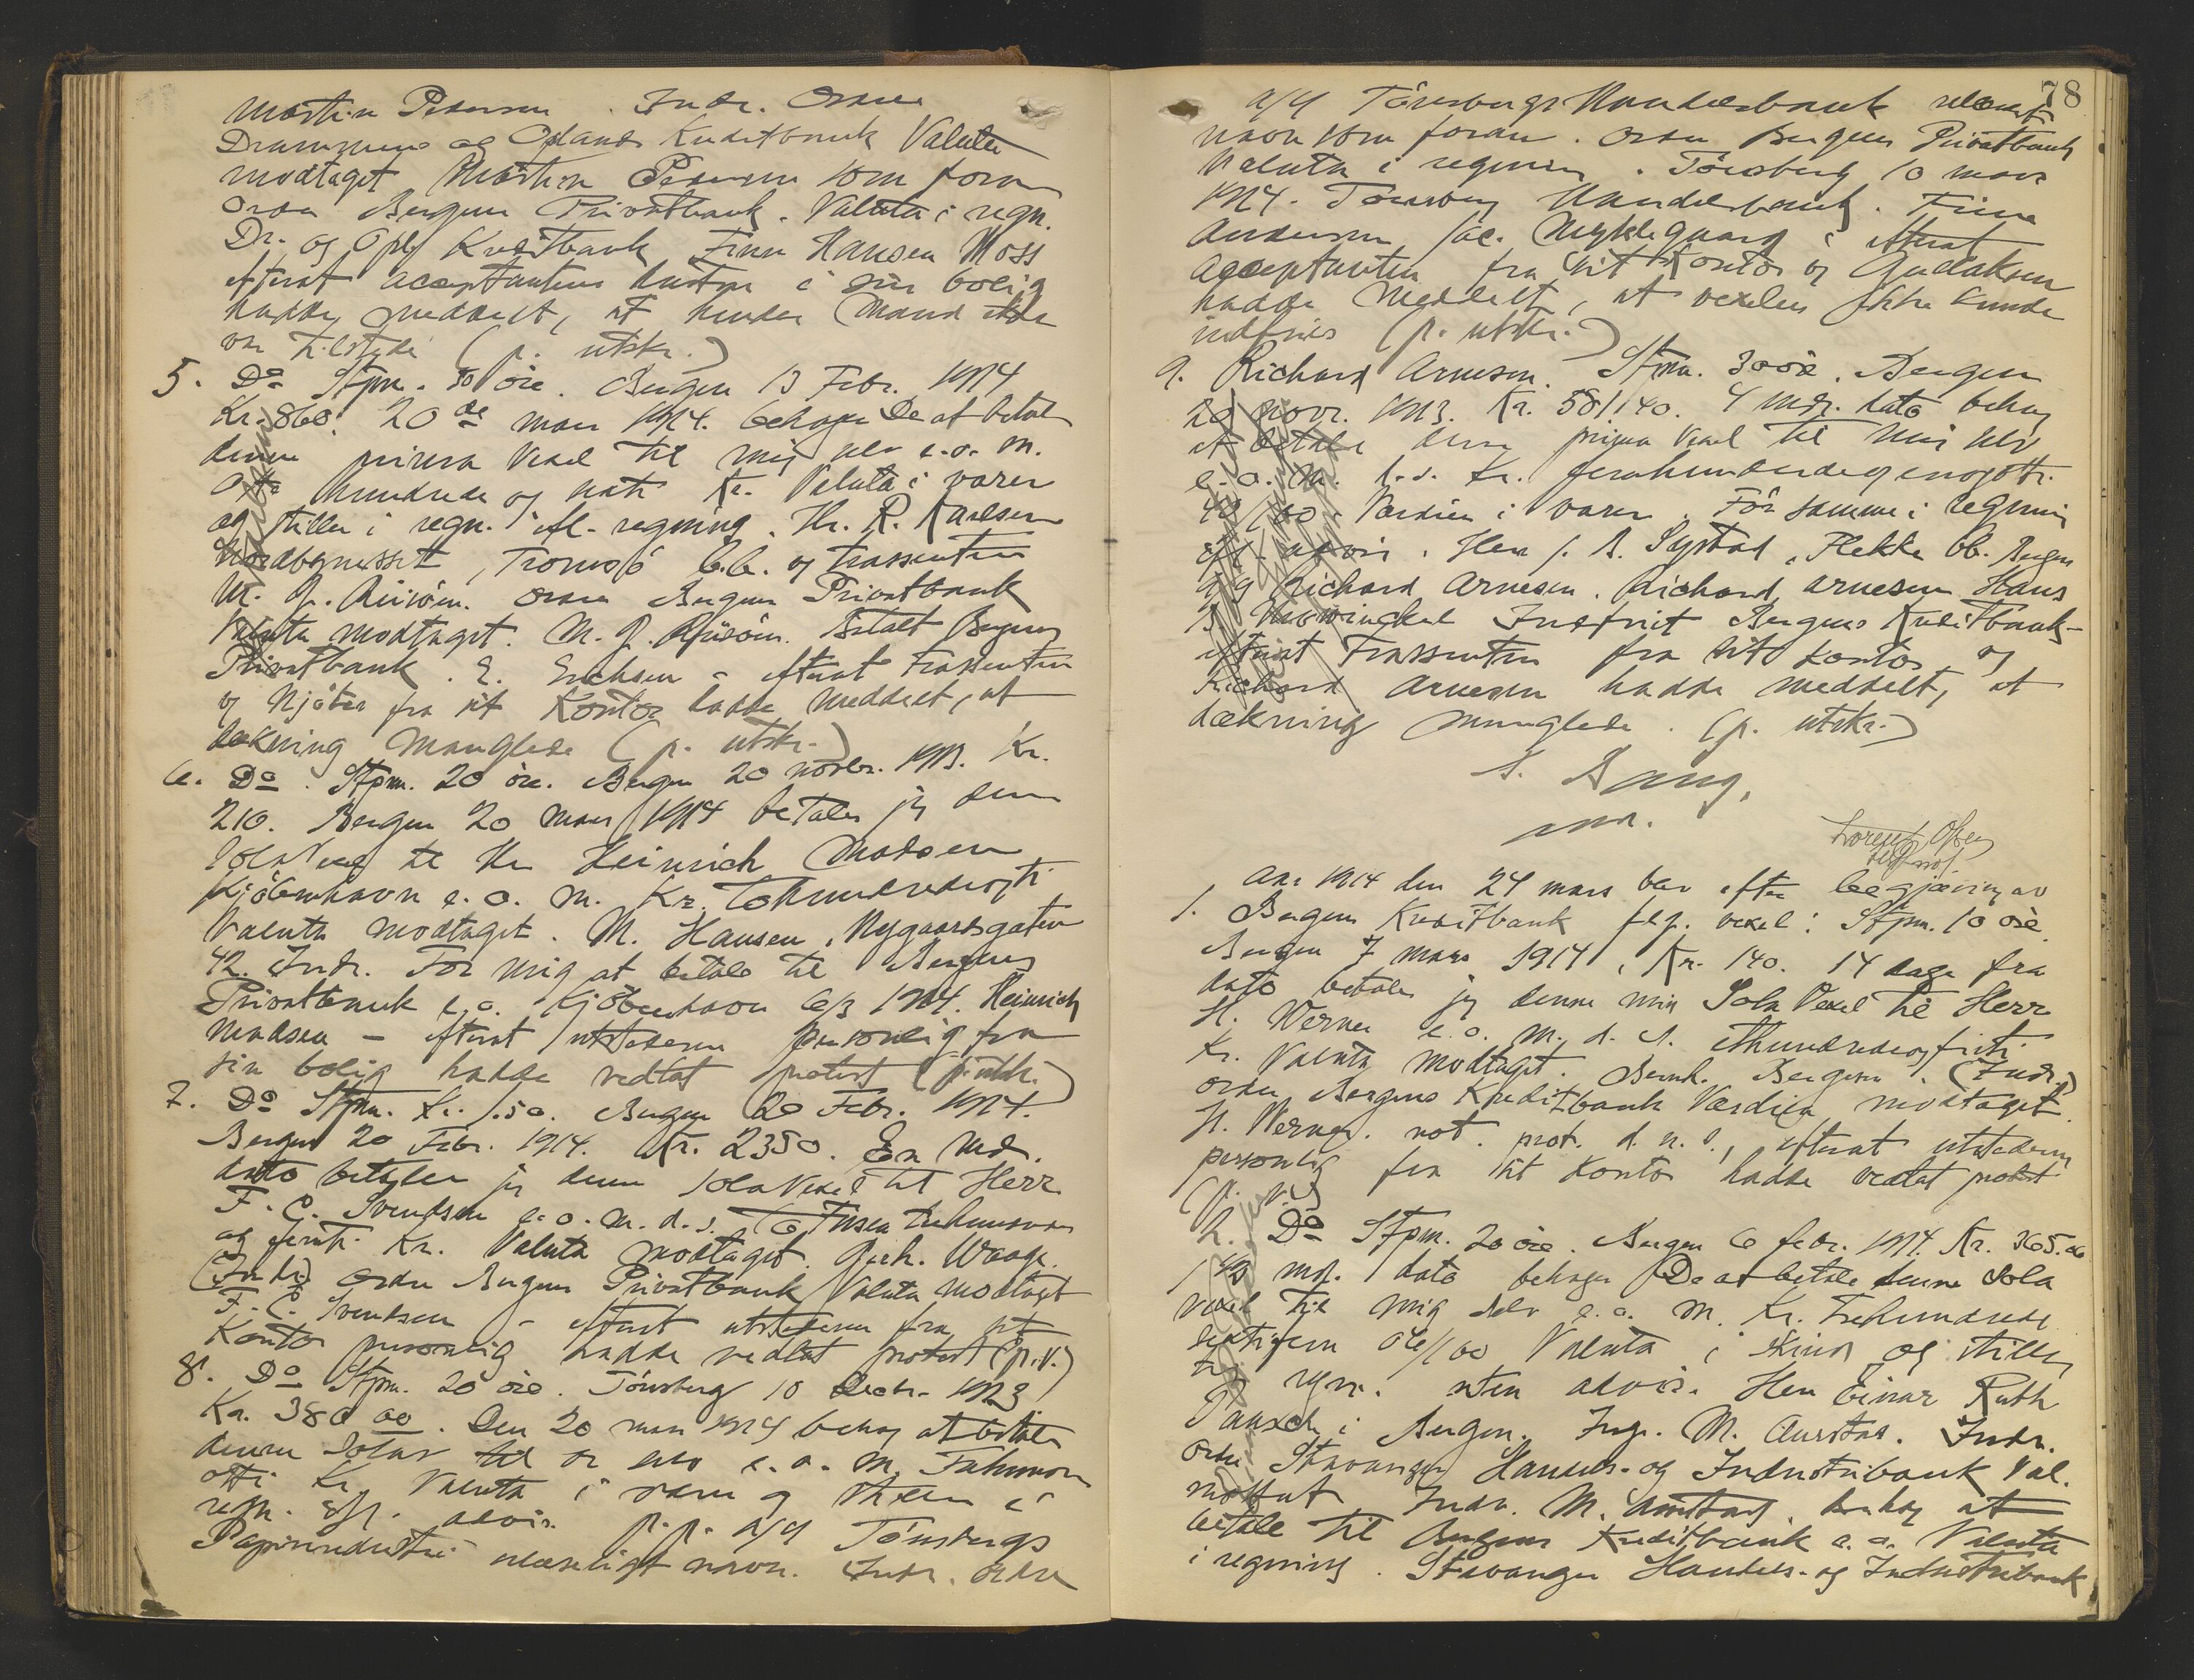 Martin Pedersen . Indr. Ordre
Drammens og Oplands Kreditbank Valuta
modtaget Martin Pedersen som foran
Ordre Bergens Privatbank. Valuta i regn.
Dr. og Opl. Kreditbank Finn Hansen Moss
efterat acceptantens hustru i sin bolig
hadde meddelt, at hendes Mand ikke
var tilstede (p. utskr.)
5. Do Stpm. 50 øre. Bergen 13 Febr. 1914
Kr. 860. 20de mars 1914. behager De at betale
denne prima Vexel til mig selv e. o. m.
Otte hundrede og seksti Kr. Valuta i varer
og stilles i regn. ifl. regning. Hr. R. Karlsen
Nordbynesset, Tromsø b.b. og trassenten
M. G. ordre Bergens Privatbank
Valuta modtaget. M. G. Betalt Bergens
Privatbank. E. Erichsen - efterat trassenten
og fra sit Kontor hadde meddelt, at
dækning manglede (p. utskr.)
6. Do. Stpm. 20 øre. Bergen 20 novbr. 1913. Kr.
210. Bergen 20 mars 1914 betaler jeg denne
Sola Vexel til Hr Heinrich Madsen
Kjøbenhavn e. o. m. Kr. Tohundredeogti
Valuta modtaget. M. Hansen, Nygaardsgaten
42. Indr. For mig at betale til Bergens
Privatbank e. o. Kjøbenhavn 6/3 1914. Heinrich
Madsen - efterat utstederen personlig fra
sin bolig hadde vedtat protest (p. utskr.)
7. Do Stpm. Kr. 1.50. Bergen 20 Febr. 1914.
Bergen 20 Febr. 1914. Kr. 2350. En Md.
dato betaler jeg denne Sola Vexel til Herr
F. C. Svendsen e. o. m. d. s. To Tusen trehundrede
og femti Kr. Valuta modtaget. Waage.
(Indr.) ordre Bergens Privatbank Valuta modtaget
F. C. Svendsen - efterat utstederen fra sit
Kontor personlig hadde vedtat protest (p. v.)
8. Do Stpm. 20 øre. Tønsberg 10 Decbr. 1913
Kr. 380 00. Den 20 mars 1914 behag at betale
denne Sola til os selv e. o. m. Trehundre
otti Kr. Valuta i varer og stilles i
regn. efl. advis. p.p. A/S Tønsbergs
Papirindustri ulæseligt navn. Indr. ordre
78
A/S Tønsbergs Handelsbank ulæseligt
navn som foran. Ordre Bergens Privatbank
Valuta i regning. Tønsberg 10 mars
1914. Tønsberg Handelsbank. Finn
Andersen, Jac. Myklegaard - efterat
acceptanten fra sit Kontor og Gudaksen
hadde meddelt, at vexelen ikke kunde
indfries (p. utskr.)
9. Richard Arnesen. Stpm. 30 øre. Bergen
20 novr. 1913. Kr. 581/40. 4 mdr. dato behag
at betale denne prima Vexel til mig selv
e. o. m. d. s. Kr. femhundredeogenogotti
40/100. Værdien i varer. Før samme i regning
ifl. advis. Herr J. A. Systad, Flekke ob. Bergen
Richard Arnesen. Richard Arnesen Hans
B. Indfriet Bergens Kreditbank -
efterat Trassenten fra sit Kontor og
Richard Arnesen hadde meddelt, at
dækning manglede. (p. utskr.)
S. Bang,
Lorentz Olsen
Aar 1914 den 24 mars blev efter begjæring av
1. Bergens Kreditbank flg. vexel: Stpm. 10 øre.
Bergen 7 mars 1914, Kr. 140. 14 dage fra
dato betaler jeg denne min Sola Vexel til Herr
H. Werner e. o. m. d. s. Ethundredeogfirti
Kr. Valuta modtaget. Bernh. Bergersen. (Indr.)
ordre Bergens Kreditbank Værdien modtaget
H. Werner. not. prot. d. n. s., efterat utstederen
personlig fra sit Kontor hadde vedtat protest
(p. v.)
2. Do Stpm. 20 øre. Bergen 6 febr. 1914. Kr. 365.06
1 1/2 md. dato behager De at betale denne Sola
Vexel til mig selv e. o. m. Kr. Trehundrede
sextifem 06/100 Valuta i skind og stilles
til regn. uten advis. Herr Einar Ruth
Pausch i Bergen. Ing. M. Aurstad. Indr.
ordre Stavanger Handels- og Industribank Val.
mottat. Indr. M. Aurstad, behag at
betale til Bergens Kreditbank e. o. Valuta
i regning. Stavanger Handels- og Industribank